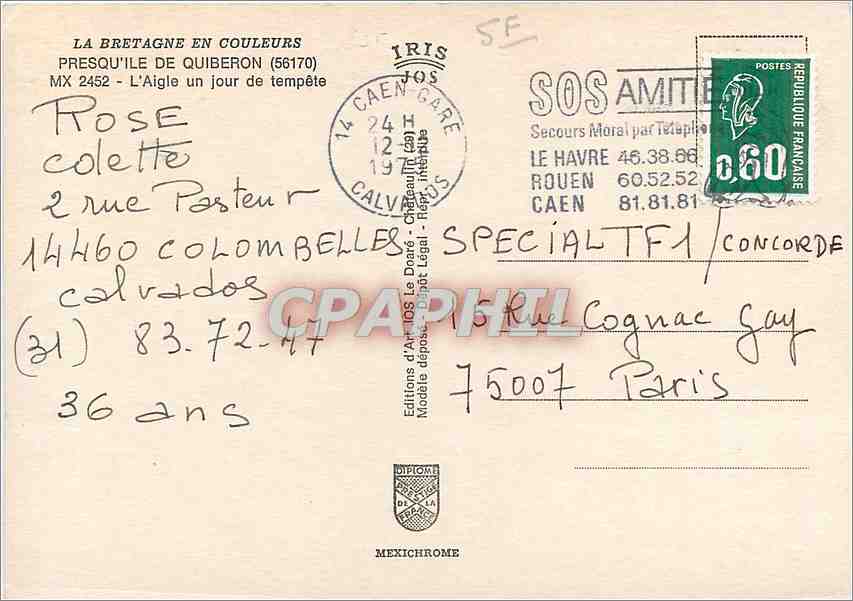 LA BRETAGNE EN COULEURS
PRESQU'ILE DE QUIBERON (56170)
MX 2452 - L'Aigle un jour de tempête
ROSE
colette
2 rue Pasteur
14460 COLOMBELLES
calvados
(31) 83.72-47
36 ans
IRIS
JOS
5F
14 CAEN-GARE
24 H
12-
197
CALVADOS
SOS AMITIE
Secours Moral par Téléphone
LE HAVRE 46.38.66
ROUEN 60.52.52
CAEN 81.81.81
POSTES
REPUBLIQUE FRANÇAISE
0,60
Editions d'Art JOS Le Doaré - Châteaulin (29)
Modèle déposé - Dépôt Légal - Repr. interdite
SPECIAL TF1/CONCORDE
15 Rue Cognac Gay
75007 Paris
CPAPHIL
DIPLOME
PRESTIGE
DE LA
FRANCE
MEXICHROME